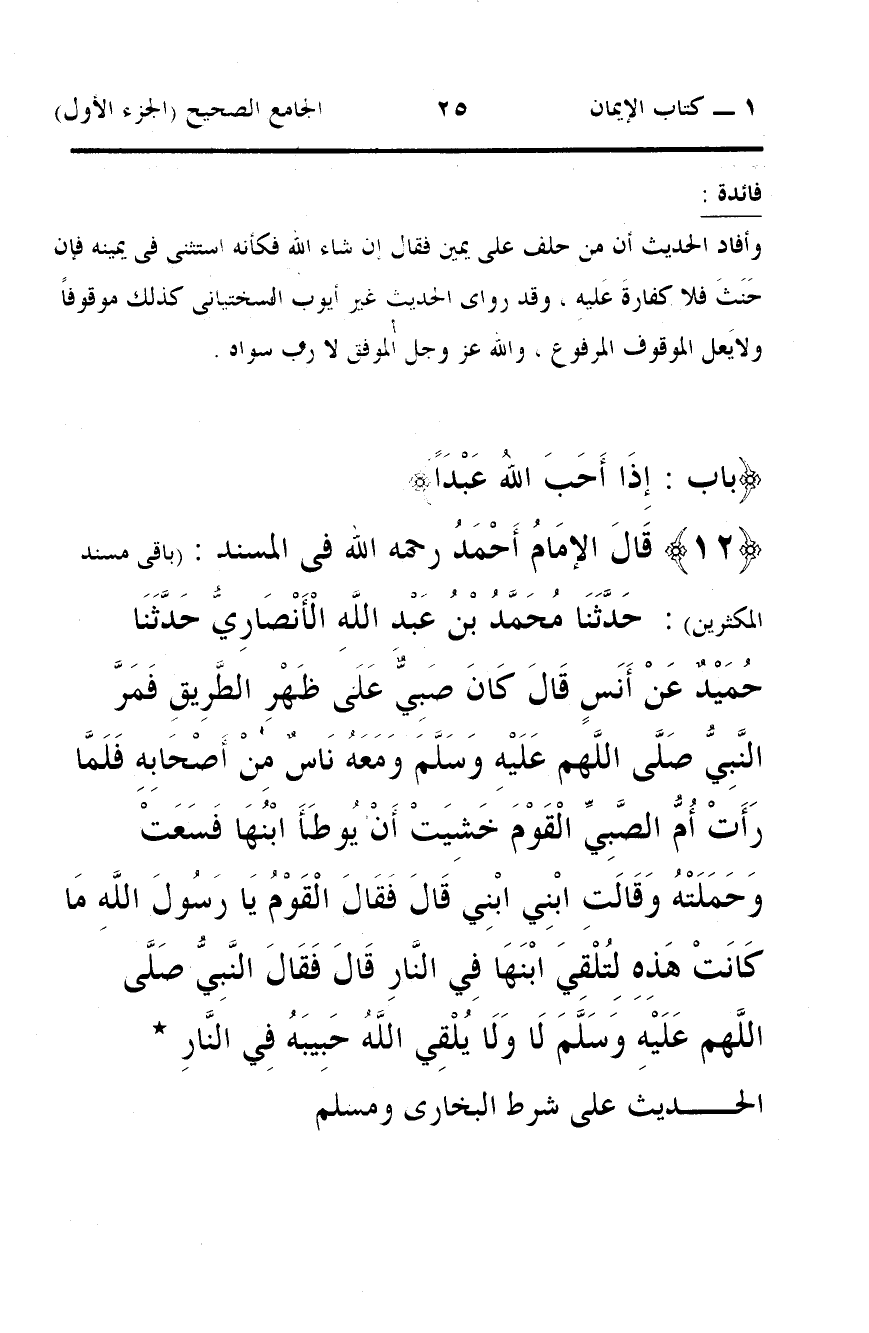 ١ ــ كتاب الإيمان ٢٥ الجامع الصحيح (الجزء الأول)
فائدة :
وأفاد الحديث أن من حلف على يمين فقال إن شاء الله فكأنه استثنى فى يمينه فإن
حَنَثَ فلا كفارةَ عَليه ، وقد رواى الحديث غير أيوب السختيانى كذلك موقوفاً
ولايَعل الموقوف المرفوع ، والله عز وجل ألموفق لا رب سواه .
﴿باب : إِذَا أَحَبَ اللهُ عَبْدَاً﴾
﴿١٢﴾ قَالَ الإمَامُ أَحْمَدُ رحمه الله فى المسند : (باقى مسند
المكثرين) : حَدَّثَنَا مُحَمَّدُ بْنُ عَبْدِ اللَّهِ الْأَنْصَارِيُّ حَدَّثَنَا
حُمَيْدٌ عَنْ أَنَسٍ قَالَ كَانَ صَبِيٌّ عَلَى ظَهْرِ الطَّرِيقِ فَمَرَّ
النَّبِيُّ صَلَّى اللَّهم عَلَيْهِ وَسَلَّمَ وَمَعَهُ نَاسٌ مِنْ أَصْحَابِهِ فَلَمَّا
رَأَتْ أُمُّ الصَّبِيِّ الْقَوْمَ خَشِيَتْ أَنْ يُوطَأَ ابْنُهَا فَسَعَتْ
وَحَمَلَتْهُ وَقَالَتِ ابْنِي ابْنِي قَالَ فَقَالَ الْقَوْمُ يَا رَسُولَ اللَّهِ مَا
كَانَتْ هَذِهِ لِتُلْقِيَ ابْنَهَا فِي النَّارِ قَالَ فَقَالَ النَّبِيُّ صَلَّى
اللَّهم عَلَيْهِ وَسَلَّمَ لَا وَلَا يُلْقِي اللَّهُ حَبِيبَهُ فِي النَّارِ *
الحـــديث على شرط البخارى ومسلم